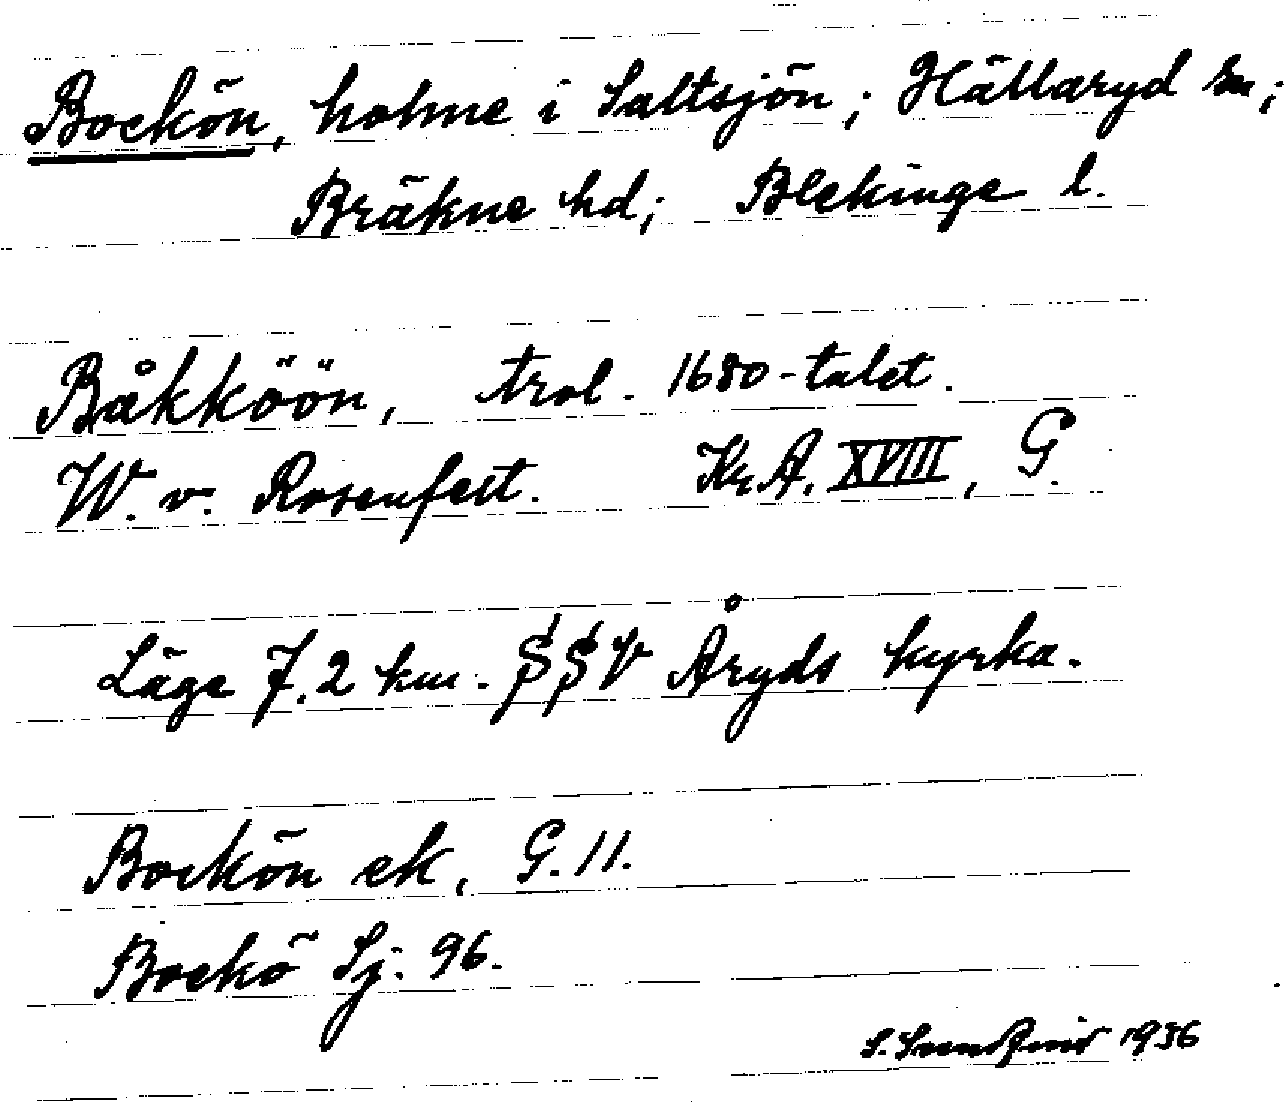 Bockön, holme i Saltsjön; Hällaryd sn;
Bräkne hd; Blekinge l.
Båkköön, trol. 1680-talet.
W. v. Rosenfelt. Kr.A. XVIII, G.
Läge 7,2 km. SSV Åryds kyrka.
Bockön ek, G. 11.
Bockö Sj. 96.
S. 1936